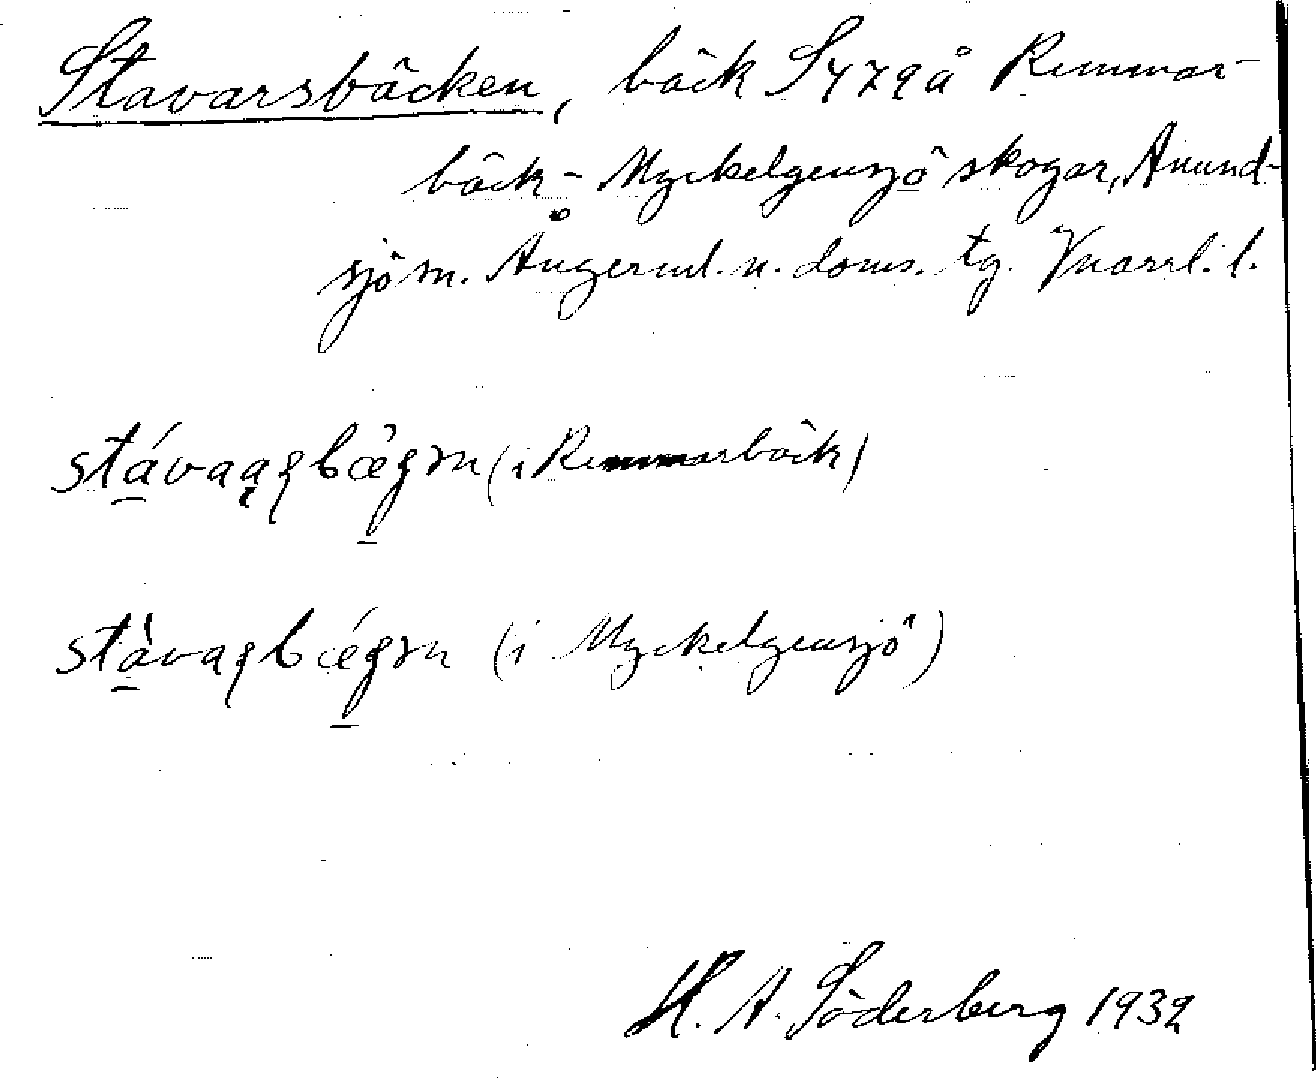 Stavarsbäcken, bäck S 479 å Remmar-
bäck - Myckelgensjö skogar, Anund-
sjö sn. Ångerml. n. doms. tg. Vnorrl. l.
(i Remmarbäck)
(i Myckelgensjö)
H. A. Söderberg 1932